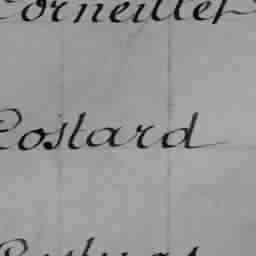 Corneillet
Costard